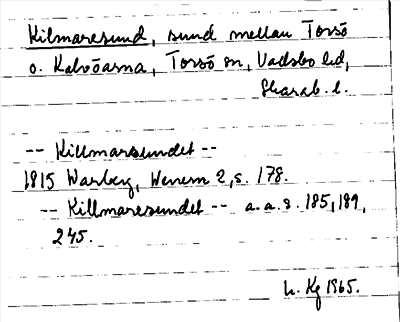 Kilmaresund, sund mellan Torsö
o. Kalvöarna, Torsö sn, Vadsbo hd,
Skarab. l.
-- Killmarsundet --
1815 Warberg, Wenern 2, s. 178.
-- Killmaresundet -- a.a. s. 185, 189,
245.
L. Kg 1965.